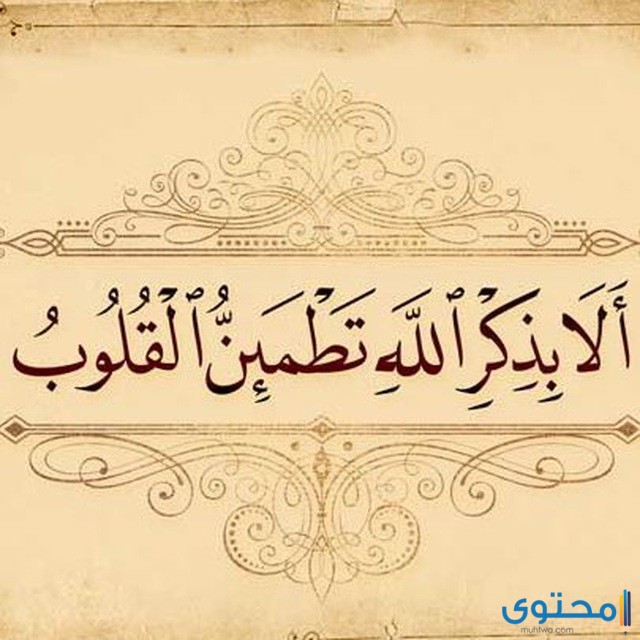 أَلَا بِذِكْرِ ٱللَّهِ تَطْمَئِنُّ ٱلْقُلُوبُ
محتوى
muhtwa.com